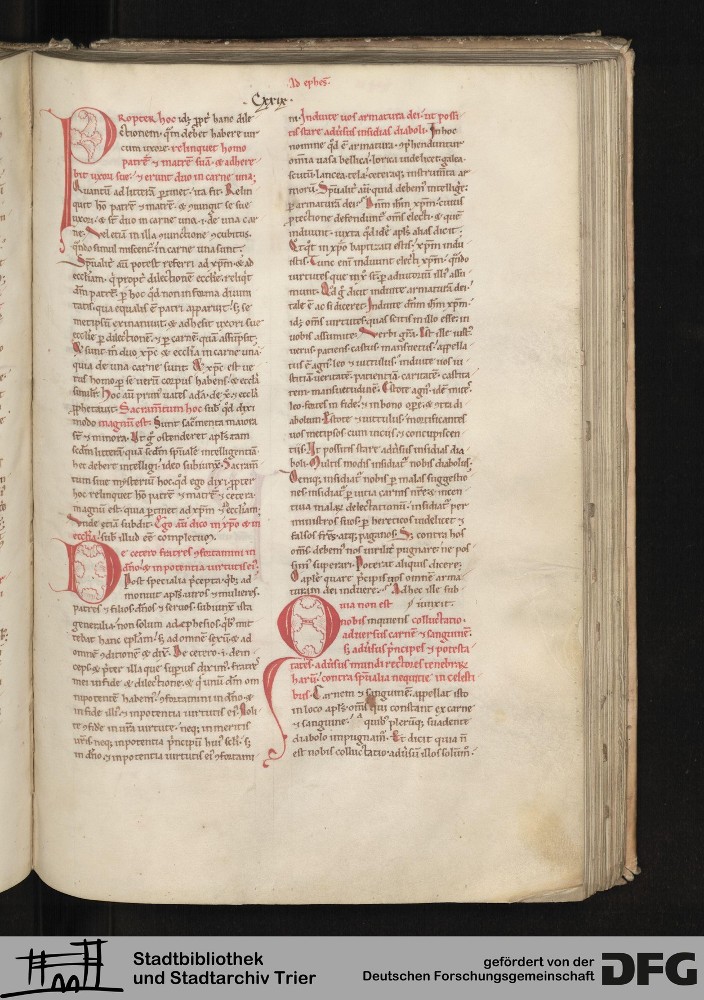 Ad ephes̄
Cxxix
Propter hoc id ē ꝓpt̄ hanc dile
ctionem q̄m debet habere uir
cum uxore relinquet homo
patrē ⁊ matrē suā ⁊ adhere
bit uxori sue ⁊ erunt duo in carne una
Quantū ad litterā ꝑtinet ita fit Relin
quit hō patrē ⁊ matrē ⁊ ꝯiungit se sue
uxori ⁊ st̄ duo in carne una i de una car
ne Vel etiā in illa ꝯiunctione ꝯcubitus
qn̄do simul miscent in carne una sunt
Spūalit̄ aū potest referri ad xpm̄ ⁊ ad
eccl̄iam q̄ ꝓpt̄ dilectionē eccl̄ie reliqt
dm̄ patrē ꝑ hoc qd̄ non in forma diuini
tatis qua equalis ē patri apparuit sꝫ se
metipsū exinaniuit ⁊ adhesit uxori sue
eccl̄ie ꝑ dilectionē ⁊ ꝑ carnē quā assūpsit
⁊ sunt in duo xp̄c ⁊ eccl̄ia in carne una
quia de una carne sunt ⁊ xp̄c est ue
rus homo ꝑ se uerū corpus habens ⁊ eccl̄a
similit̄ Hoc aū prim' uates adā de x̄ ⁊ eccl̄a
ꝓphetauit Sacramentum hoc sub qd̄ dixi
modo magnū est Sunt sac̄menta maiora
st̄ ⁊ minora Ut g° ostenderet apl̄s tam
scd̄m litterā quā scd̄m spūalē intelligentiā
hec debere intelligi ideo subiunx̄ Sacram̄
tum siue mysteriū hoc qd̄ ego dixi ꝓpter
hoc relinquet hō patrē ⁊ matrē ⁊ cetera
magnū est quia ꝑtinet ad xpm̄ ⁊ eccl̄iam
Unde etiā subdit Ego aū dico in xp̄o ⁊ in
eccl̄ia sub illud ēē completum
De cetero fratres ꝯfortamini in
dn̄o ⁊ in potentia uirtutis ei'
Post specialia p̄cepta qb; ad
monuit apl̄s uiros ⁊ mulieres
patres ⁊ filios dn̄os ⁊ seruos subiunx̄ ista
generalia non solum ad ephesios qb; mit
tebat hanc epl̄am sꝫ ad omnē sexū ⁊ ad
omnē ꝯditionē ⁊ dix̄ De cetero i dein
ceps ⁊ p̄ter illa que suꝑius dixim' fratres
mei in fide ⁊ dilectione ⁊ q unū dm̄ om
nipotentē habem' ꝯfortamini in dn̄o ⁊
in fide illi' ⁊ in potentia uirtutis ei' Noli
te ꝯfide in ur̄a uirtute neq; in meritis
ur̄is neq; in potentia p̄ncipū hui' scl̄i sꝫ
in dn̄o ⁊ in potentia uirtutis ei' ꝯfortami
ni Induite uos armatura dei ut possi
tis stare aduersus insidias diaboli In hoc
nomine qd̄ ē armatura ꝯp̄henduntur
om̄ia uasa bellica lorica uidelicet galea
scutū lancea tela ceteraq; instrum̄ta ar
morū Spūalit̄ aū quid debem' intellige
ꝑ armaturā dei Dn̄m ihm̄ xpm̄ cuius
ꝓtectione defendunt̄ om̄s electi ⁊ quē
induunt iuxta qd̄ idē apl̄s alias dicit
Et qt in xp̄o baptizati estis xpm̄ indu
istis Tunc eni induunt electi xpm̄ qn̄do
uirtutes que in ē st̄ ꝑ adiutoriū illi' assu
munt Qd̄ g° dicit induite armaturā dei
tale ē ac si diceret Induite dn̄m ihm̄ xpm̄
id ē om̄s uirtutes quas scitis in illo esse in
uobis assumite Verbi grā Est ille iust'
uerus paciens castus mansuetus appella
tus ē agn' leo ⁊ uitulus induite uos iu
sticiā ueritatē patientiā caritatē castita
tem mansuetudinē Estote agni id ē mites
leo fortes in fide ⁊ in bono oꝑe ⁊ ꝯtra di
abolum Estote ⁊ uituli mortificantes
uos metipsos cum uiciis ⁊ concupiscen
tiis Ut possitis stare aduersus insidias dia
boli Multis modis insidiat̄ nobis diabolus
Deniq; insidiat̄ nobis ꝑ malas suggestio
nes insidiat̄ ꝑ uitia carnis nr̄e ⁊ incen
tiua malaꝝ delectationū insidiat̄ per
ministros suos ꝑ hereticos uidelicet ⁊
falsos frēs atq; paganos Sꝫ contra hos
om̄s debem' nos uirilit̄ pugnare ne pos
sim' superari Poterat aliquis dicere
O aple quare p̄cipis nos omnē arma
turam dei induere Ad hoc ille sub
Quia non est iunxit
nobis inquiens colluctatio
aduersus carnē ⁊ sanguinē
sꝫ aduersus p̄ncipes ⁊ potesta
tates aduersus mundi rectores tenebraꝝ
harū contra spūalia nequitie in celesti
bus Carnem ⁊ sanguinē appellat isto
in loco apl̄s om̄s qui constant ex carne
⁊ sanguine quib' plerūq; suadente
diabolo impugnam' Et dicit quia n̄
est nobis colluctatio aduersus illos solum
Stadtbibliothek
und Stadtarchiv Trier
gefördert von der
Deutschen Forschungsgemeinschaft
DFG